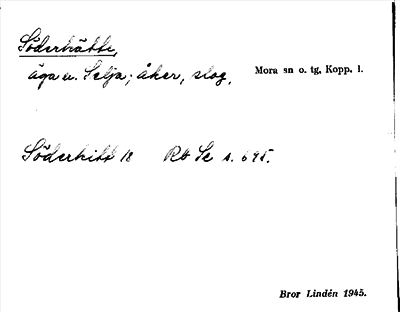 Söderhätte,
äga u. Selja; åker, slog. Mora sn o. tg, Kopp. l.
Söderhitt 18 Rb Se s. 695.
Bror Lindén 1945.